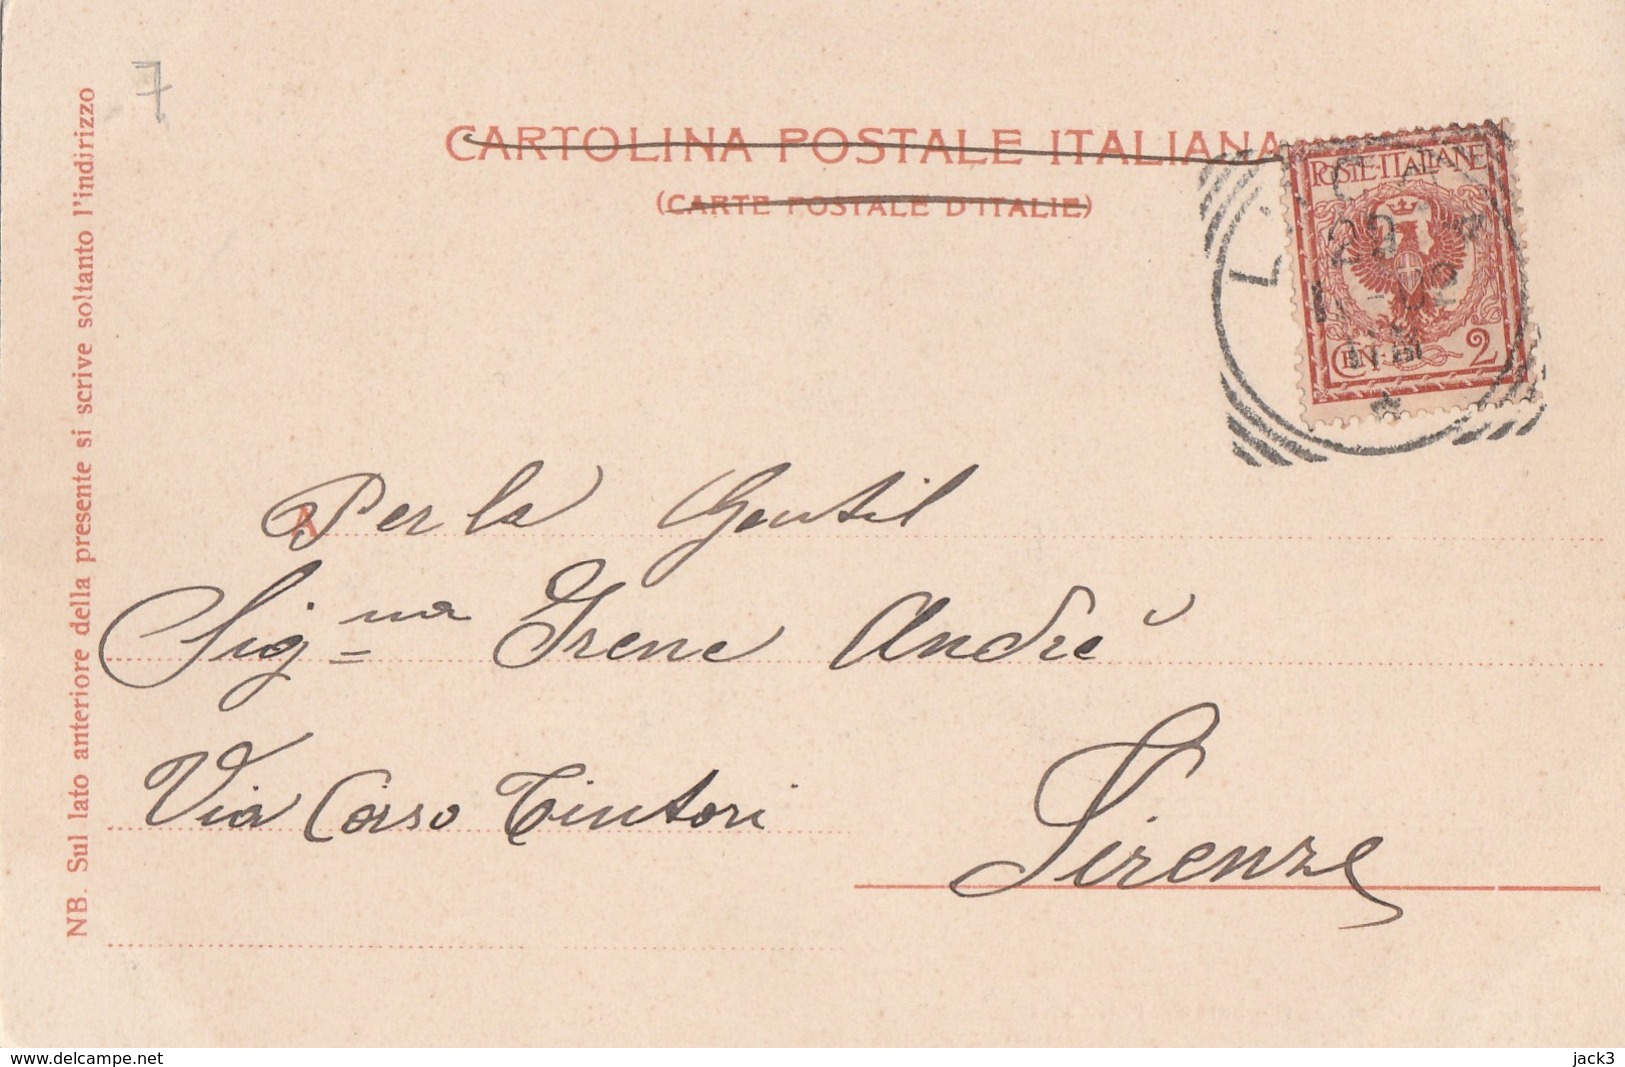 7
CARTOLINA POSTALE ITALIANA
(CARTE POSTALE D'ITALIE)
POSTE·ITALIANE
29
CENT. 2
NB. Sul lato anteriore della presente si scrive soltanto l'indirizzo
A
Per la Gentil
Sig.na Irene Andrè
Via Corso Tintori
Firenze
www.delcampe.net
jack3